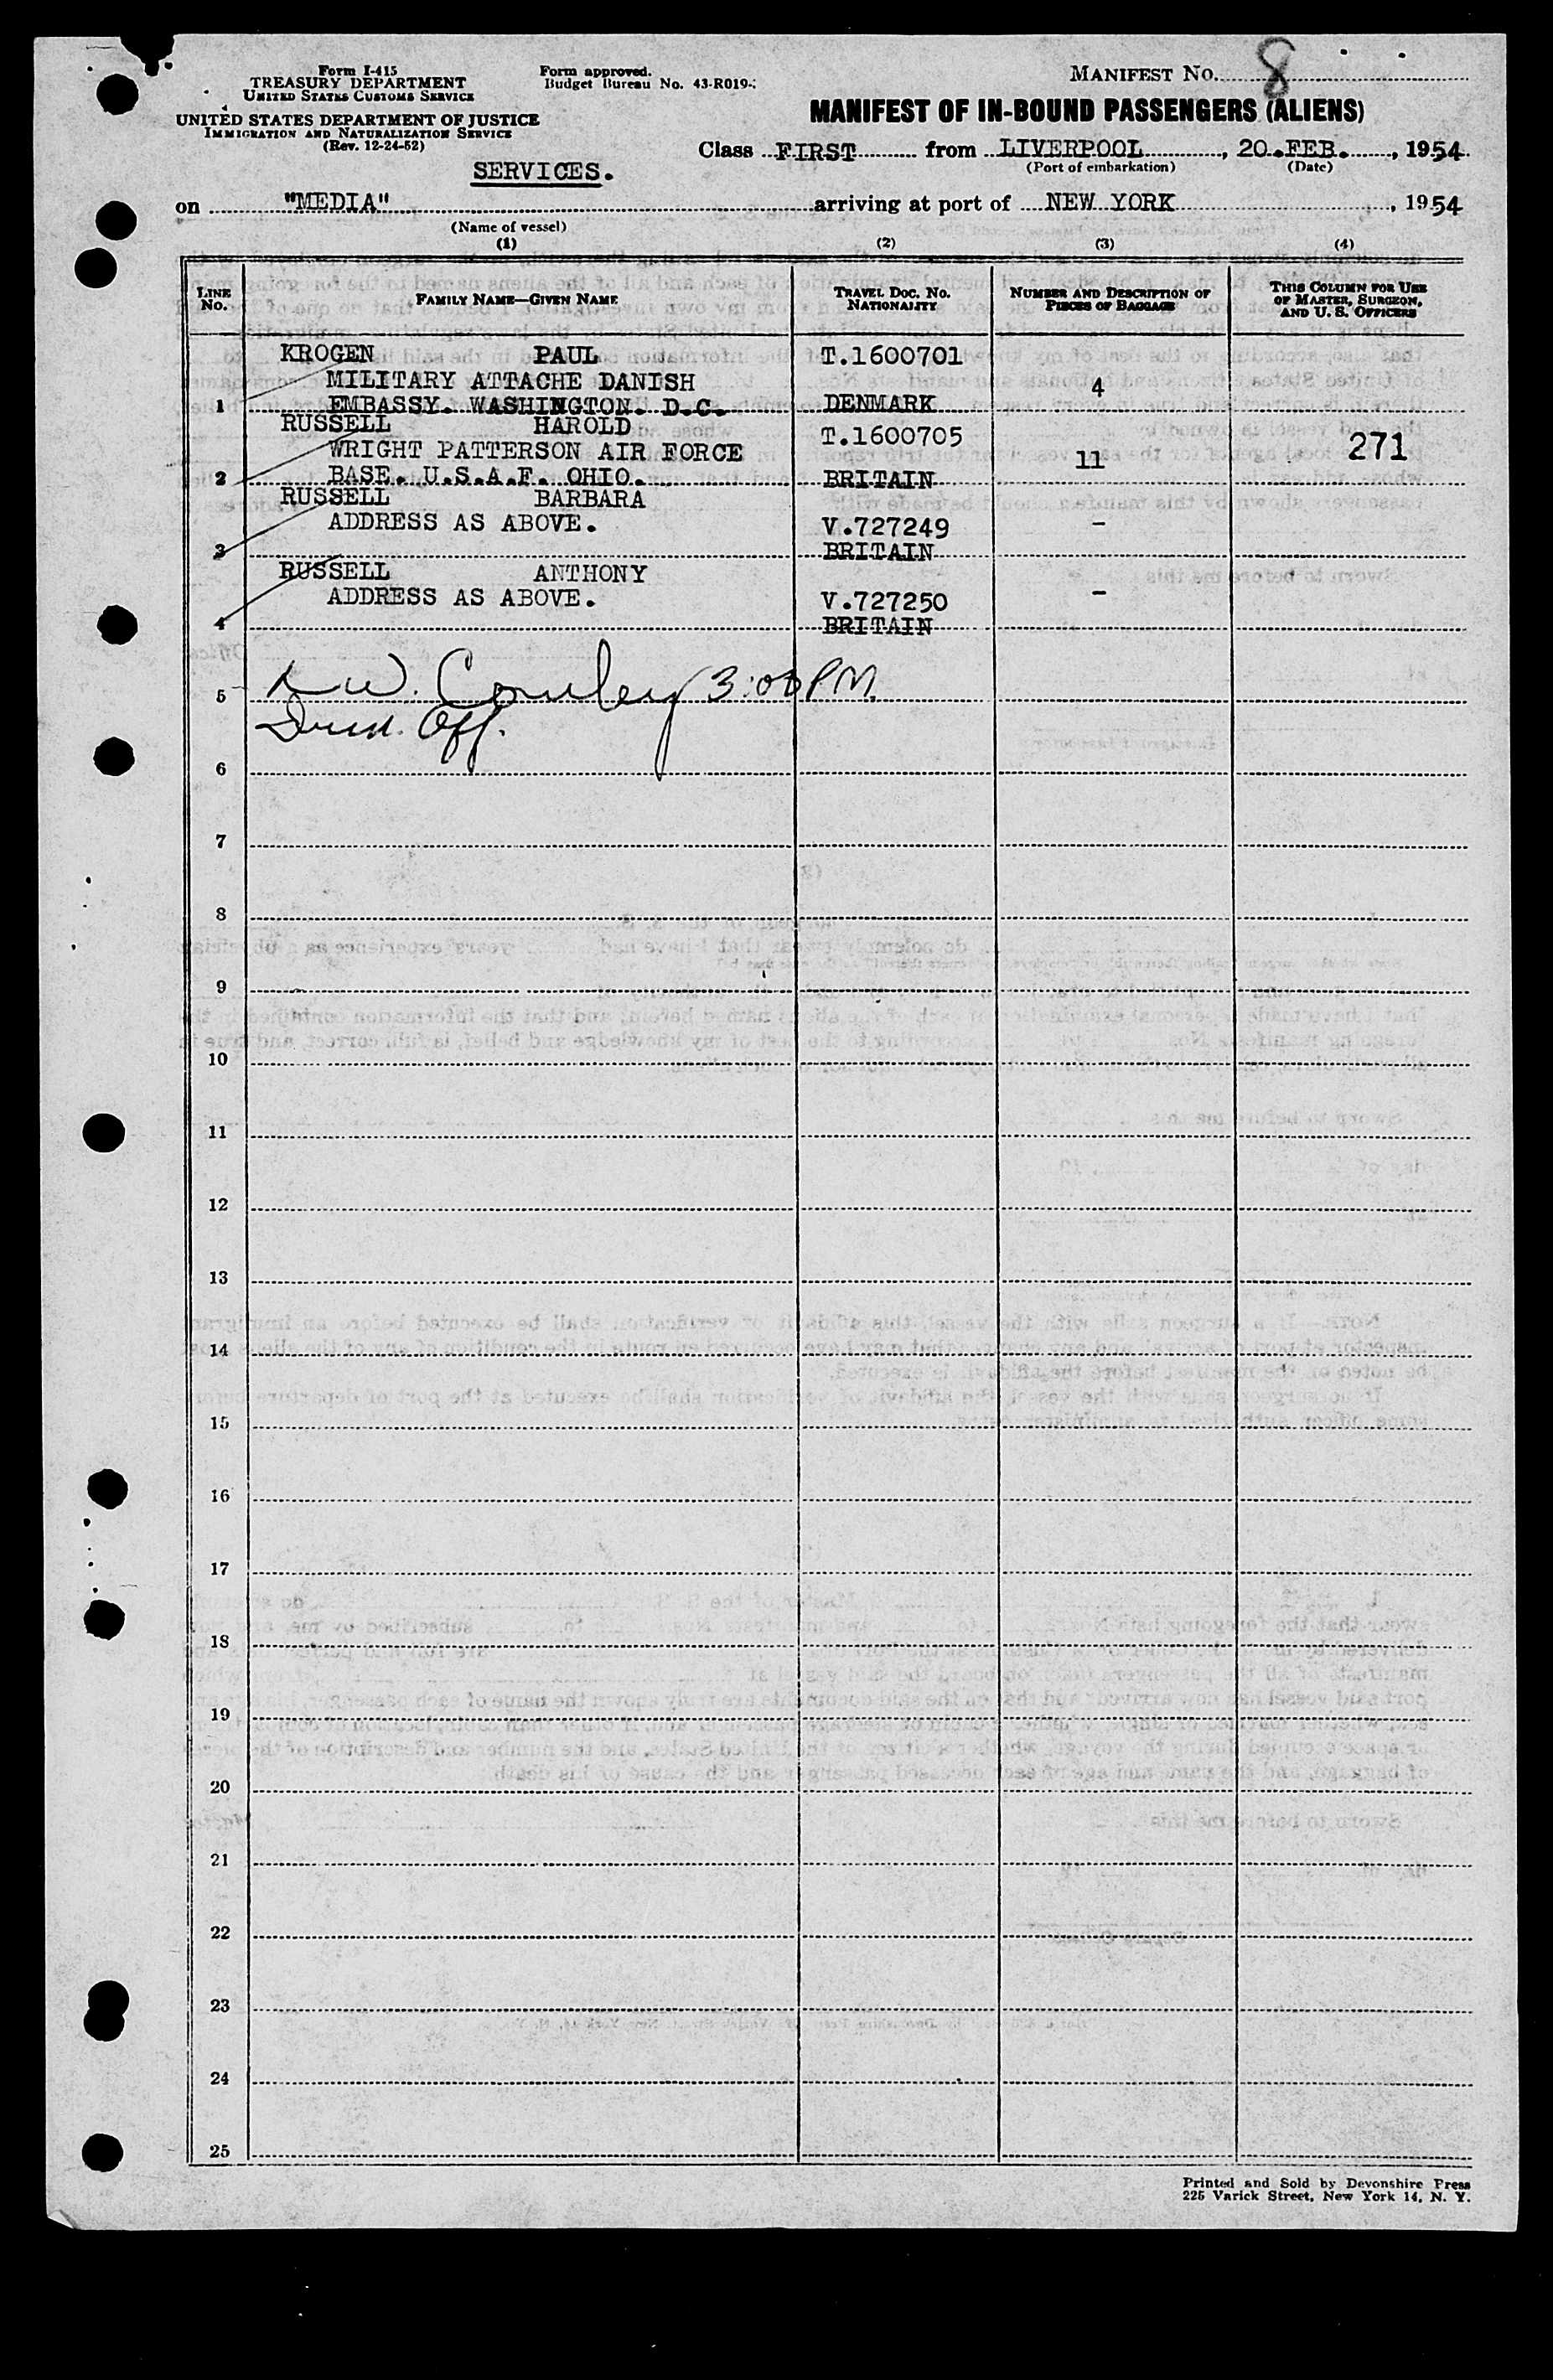 Form I-415
TREASURY DEPARTMENT
UNITED STATES CUSTOMS SERVICE
UNITED STATES DEPARTMENT OF JUSTICE
IMMIGRATION AND NATURALIZATION SERVICE
(Rev. 12-24-52)
Form approved.
Budget Bureau No. 43-R019-
MANIFEST No. 8
MANIFEST OF IN-BOUND PASSENGERS (ALIENS)
Class FIRST from LIVERPOOL, 20.FEB., 1954
(Port of embarkation) (Date)
SERVICES.
on "MEDIA" arriving at port of NEW YORK, 1954
(Name of vessel)
(1) (2) (3) (4)
LINE No. FAMILY NAME—GIVEN NAME TRAVEL DOC. No. NATIONALITY NUMBER AND DESCRIPTION OF PIECES OF BAGGAGE THIS COLUMN FOR USE OF MASTER, SURGEON, AND U. S. OFFICERS
KROGEN PAUL T.1600701
MILITARY ATTACHE DANISH 4
1 EMBASSY. WASHINGTON. D.C. DENMARK
RUSSELL HAROLD T.1600705
WRIGHT PATTERSON AIR FORCE 11 271
2 BASE. U.S.A.F. OHIO. BRITAIN
RUSSELL BARBARA
ADDRESS AS ABOVE. V.727249 -
3 BRITAIN
RUSSELL ANTHONY
ADDRESS AS ABOVE. V.727250 -
4 BRITAIN
5 W. Cowley 3:00 PM
Off.
6
7
8
9
10
11
12
13
14
15
16
17
18
19
20
21
22
23
24
25
Printed and Sold by Devonshire Press
225 Varick Street, New York 14, N. Y.